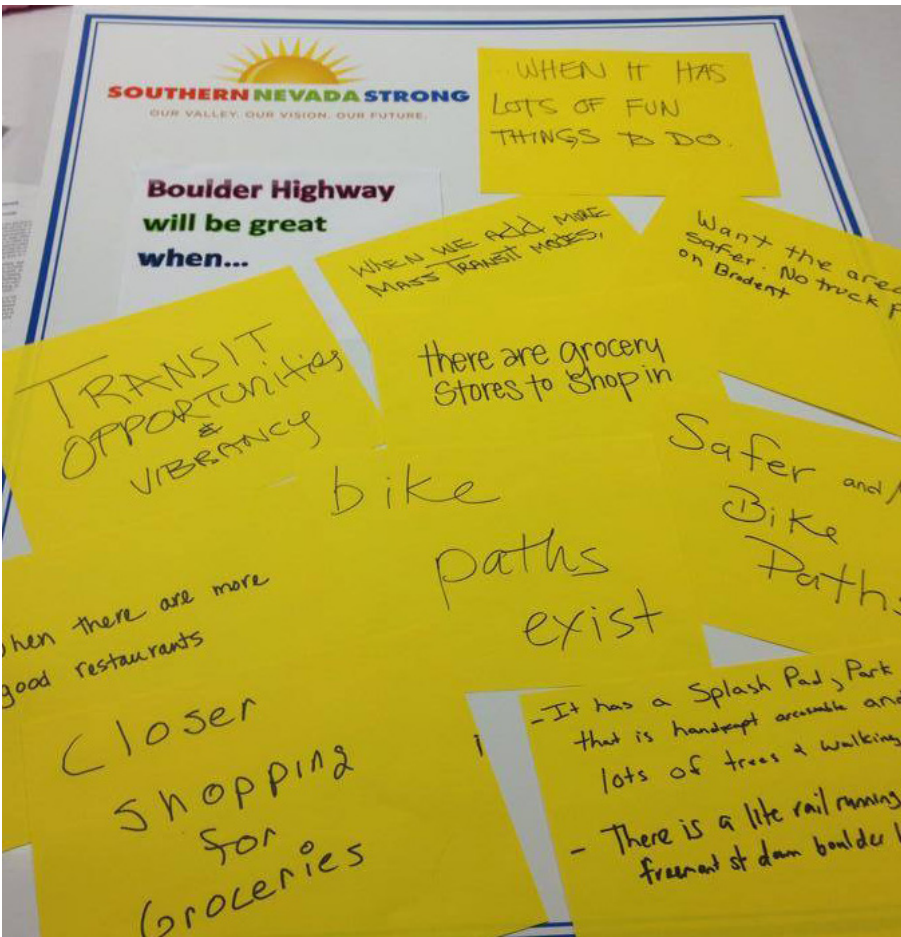 SOUTHERN NEVADA STRONG
OUR VALLEY. OUR VISION. OUR FUTURE.
...WHEN IT HAS
LOTS OF FUN
THINGS TO DO.
Boulder Highway
will be great
when...
WHEN WE ADD MORE
MASS TRANSIT MODES.
Want the area
safer. No truck
on Brodent
TRANSIT
OPPORTUNITIES
&
VIBRANCY
there are grocery
Stores to shop in
bike
paths
exist
Safer and
Bike
Paths
when there are more
good restaurants
Closer
shopping
for
Groceries
- It has a Splash Pad, Park
that is handicapt and
lots of trees & walking
- There is a lite rail running
freemont st down boulder